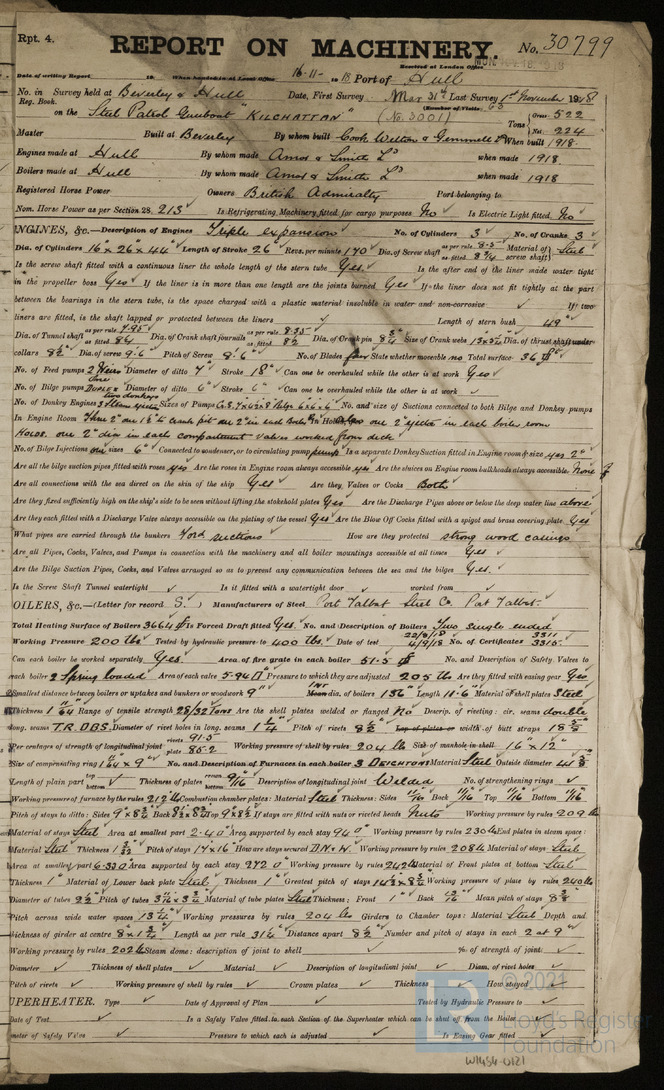 Rpt. 4.
REPORT ON MACHINERY. No. 30799
Received at London Office
Date of writing Report 19 When handed in at Local Office 16-11- 1918 Port of Hull
No. in Survey held at Beverley & Hull Date, First Survey Mar 31st Last Survey 1st November 1918
Reg. Book. (Number of Visits 63
on the Steel Patrol Gunboat "KILCHATTAN" (No. 3001)
Tons Gross 522
Net 224
Master Built at Beverley By whom built Cook Welton & Gemmell Ld When built 1918
Engines made at Hull By whom made Amos & Smith Ld when made 1918
Boilers made at Hull By whom made Amos & Smith Ld when made 1918
Registered Horse Power Owners British Admiralty Port belonging to
Nom. Horse Power as per Section 28. 213 Is Refrigerating Machinery fitted for cargo purposes No Is Electric Light fitted No
NGINES, &c.—Description of Engines Triple expansion No. of Cylinders 3 No. of Cranks 3
Dia. of Cylinders 16" x 26" x 44" Length of Stroke 26" Revs. per minute 170 Dia. of Screw shaft as per rule 8.5 as fitted 8 3/4 Material of screw shaft Steel
Is the screw shaft fitted with a continuous liner the whole length of the stern tube Yes. Is the after end of the liner made water tight
in the propeller boss Yes If the liner is in more than one length are the joints burned Yes If the liner does not fit tightly at the part
between the bearings in the stern tube, is the space charged with a plastic material insoluble in water and non-corrosive ✓ If two
liners are fitted, is the shaft lapped or protected between the liners ✓ Length of stern bush 49"
Dia. of Tunnel shaft as per rule 7.95 as fitted 8 1/4 Dia. of Crank shaft journals as per rule 8.35 as fitted 8 1/2 Dia. of Crank pin 8 3/4 Size of Crank webs Dia. of thrust shaft under
collars 8 1/2" Dia. of screw 9-6" Pitch of Screw 8-6" No. of Blades four State whether moveable no Total surface 36
No. of Feed pumps 2 Weirs Diameter of ditto 7" Stroke 18" Can one be overhauled while the other is at work Yes
No. of Bilge pumps one DUPLEX Diameter of ditto 6" Stroke 6" Can one be overhauled while the other is at work ✓
No. of Donkey Engines two donkeys Sizes of Pumps No. and size of Suctions connected to both Bilge and Donkey pumps
In Engine Room Three 2" one 1 1/2" to crank pit one 2" in each In Holds, &c. one 2" in each boiler room
Holds. one 2" dia in each compartment valves worked from deck
No. of Bilge Injections one sizes 6" Connected to condenser, or to circulating pump pump Is a separate Donkey Suction fitted in Engine room & size yes 2"
Are all the bilge suction pipes fitted with roses yes Are the roses in Engine room always accessible yes Are the sluices on Engine room bulkheads always accessible None
Are all connections with the sea direct on the skin of the ship Yes Are they Valves or Cocks Both
Are they fixed sufficiently high on the ship's side to be seen without lifting the stokehold plates Yes Are the Discharge Pipes above or below the deep water line above
Are they each fitted with a Discharge Valve always accessible on the plating of the vessel Yes Are the Blow Off Cocks fitted with a spigot and brass covering plate Yes
What pipes are carried through the bunkers Ford suctions How are they protected strong wood casings
Are all Pipes, Cocks, Valves, and Pumps in connection with the machinery and all boiler mountings accessible at all times Yes
Are the Bilge Suction Pipes, Cocks, and Valves arranged so as to prevent any communication between the sea and the bilges Yes.
Is the Screw Shaft Tunnel watertight ✓ Is it fitted with a watertight door ✓ worked from ✓
OILERS, &c.—(Letter for record S. ) Manufacturers of Steel Port Talbot Steel Co. Port Talbot.
Total Heating Surface of Boilers 3664 Is Forced Draft fitted Yes. No. and Description of Boilers Two single ended
Working Pressure 200 lbs. Tested by hydraulic pressure to 400 lbs. Date of test 22/8/18 4/9/18 No. of Certificates 3311 3315.
Can each boiler be worked separately Yes. Area of fire grate in each boiler 51.5 No. and Description of Safety Valves to
each boiler 2 Spring loaded Area of each valve 5.94 Pressure to which they are adjusted 205 lbs Are they fitted with easing gear Yes
Smallest distance between boilers or uptakes and bunkers or woodwork 9" Int Mean dia. of boilers 156" Length 11-6" Material of shell plates Steel
Thickness 1 1/64 Range of tensile strength 28/32 Tons Are the shell plates welded or flanged No Descrip. of riveting: cir. seams double
long. seams T.R. DBS. Diameter of rivet holes in long. seams 1 1/4" Pitch of rivets 8 1/2 Lap of plates or width of butt straps 18 3/8
Per centages of strength of longitudinal joint rivets 91.5 plate 85.2 Working pressure of shell by rules 204 lb Size of manhole in shell 16" x 12"
Size of compensating ring 1 1/64 x 9" No. and Description of Furnaces in each boiler 3 DEIGHTONS Material Steel Outside diameter
Length of plain part top bottom Thickness of plates crown bottom 9/16 Description of longitudinal joint Welded No. of strengthening rings ✓
Working pressure of furnace by the rules 212 lb Combustion chamber plates: Material Steel Thickness: Sides 11/16 Back 11/16 Top 11/16 Bottom 11/16
Pitch of stays to ditto: Sides 9" x 8 1/2 Back Top 9" x 8 1/2 If stays are fitted with nuts or riveted heads Nuts Working pressure by rules 209 lb
Material of stays Steel Area at smallest part 2.40" Area supported by each stay 94" Working pressure by rules 230 lb End plates in steam space:
Material Steel Thickness 1 3/32 Pitch of stays 17 x 16" How are stays secured D.N. & W. Working pressure by rules 208 lb Material of stays Steel
Area at smallest part 6.33 Area supported by each stay 272 Working pressure by rules 242 lb Material of Front plates at bottom Steel
Thickness 1" Material of Lower back plate Steel Thickness 1" Greatest pitch of stays Working pressure of plate by rules 240 lb
Diameter of tubes 2 1/2" Pitch of tubes Material of tube plates Steel Thickness: Front 1" Back Mean pitch of stays
Pitch across wide water spaces 13 3/4" Working pressures by rules 204 lbs Girders to Chamber tops: Material Steel Depth and
thickness of girder at centre 8" x 1 3/4" Length as per rule 31 1/4" Distance apart 8 1/2" Number and pitch of stays in each 2 at 9"
Working pressure by rules 202 lb Steam dome: description of joint to shell ✓ % of strength of joint ✓
Diameter ✓ Thickness of shell plates ✓ Material ✓ Description of longitudinal joint ✓ Diam. of rivet holes ✓
Pitch of rivets ✓ Working pressure of shell by rules ✓ Crown plates ✓ Thickness ✓ How stayed
UPERHEATER. Type ✓ Date of Approval of Plan ✓ Tested by Hydraulic Pressure to ✓
Date of Test ✓ Is a Safety Valve fitted to each Section of the Superheater which can be shut off from the Boiler
meter of Safety Valve ✓ Pressure to which each is adjusted ✓ Is Easing Gear fitted
© 2021
Lloyd's Register
Foundation
W1454-0121